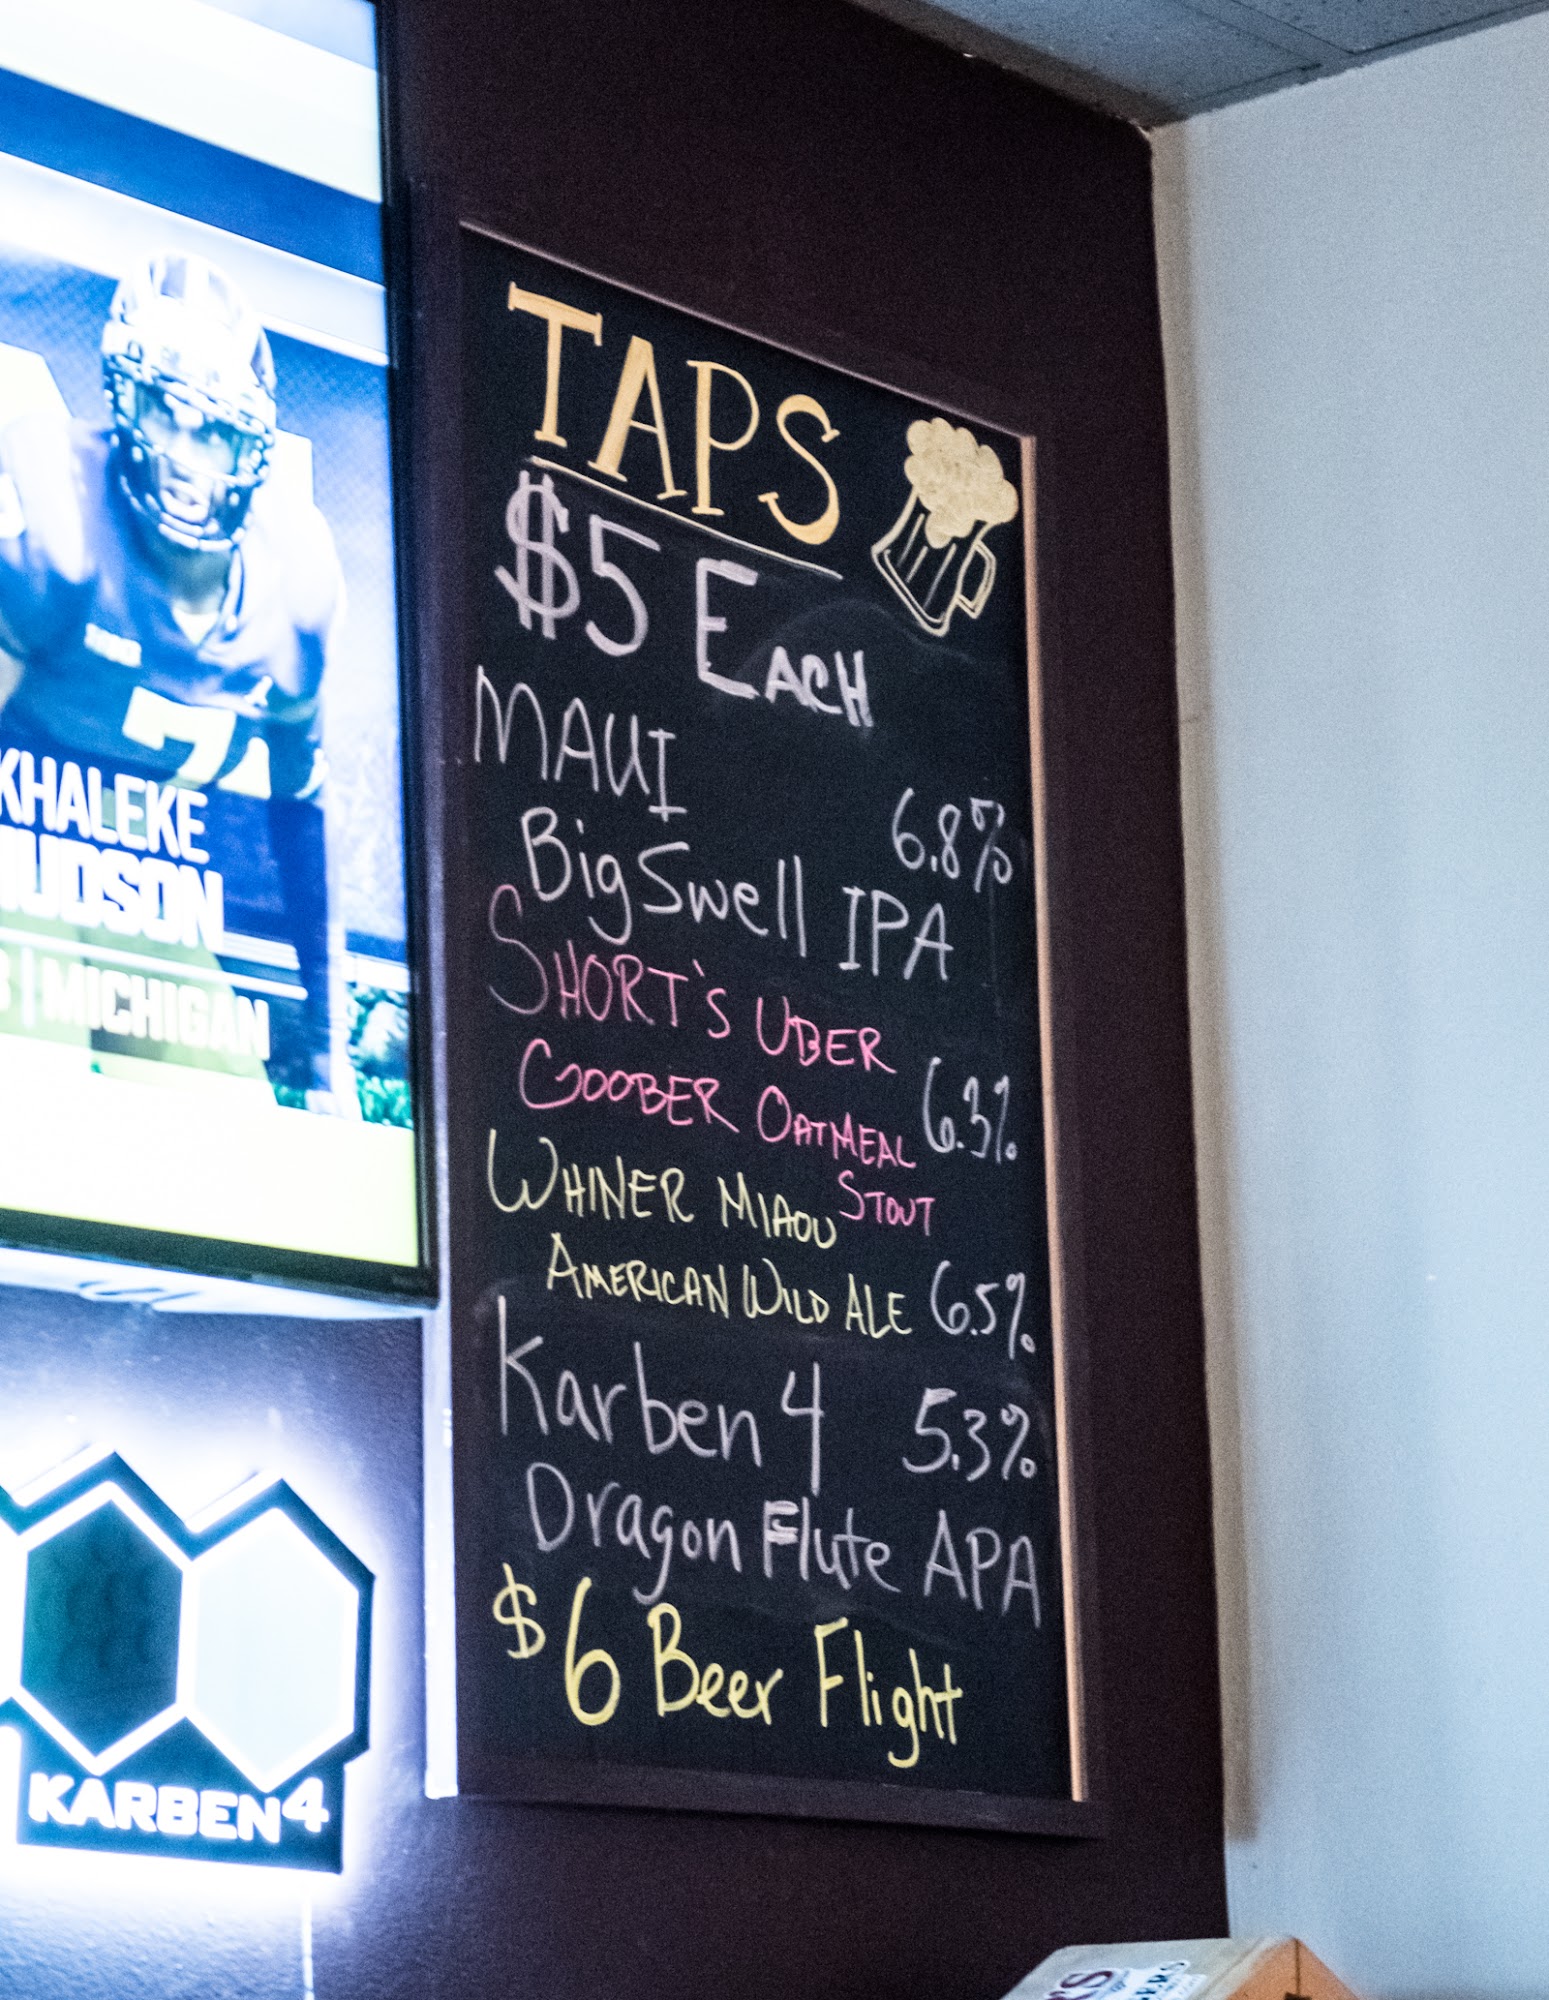 TAPS
$5 EACH
MAUI
Big Swell IPA 6.8%
SHORT'S UBER
GOOBER OATMEAL 6.3%
STOUT
WHINER MIAOU
AMERICAN WILD ALE 6.5%
Karben 4 5.3%
Dragon Flute APA
$6 Beer Flight
KHALEKE
HUDSON
MICHIGAN
KARBEN4